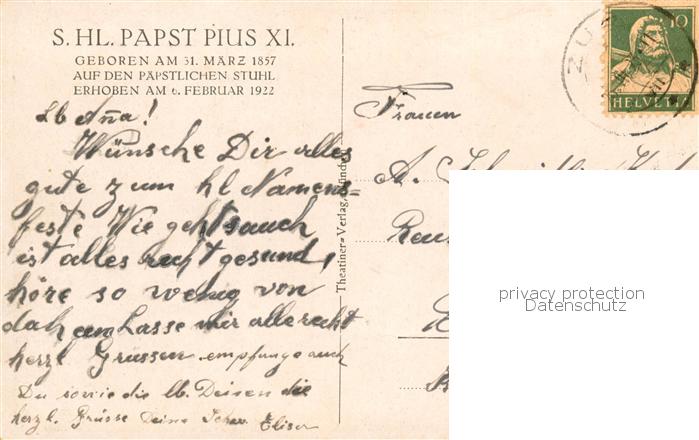 S. HL. PAPST PIUS XI.
GEBOREN AM 31. MÄRZ 1857
AUF DEN PÄPSTLICHEN STUHL
ERHOBEN AM 6. FEBRUAR 1922
Lb Anna!
Wünsche Dir alles
gute zum hl Namens=
feste Wie geht's auch
ist alles recht gesund,
höre so wenig von
daheim Lasse mir alle recht
herzl Grüssen empfange auch
Du sowie die lb. Deinen die
herzl. Grüsse Deine Elise
Theatiner=Verlag, München
Frauen
A.
ZU
10
HELVETIA
privacy protection
Datenschutz